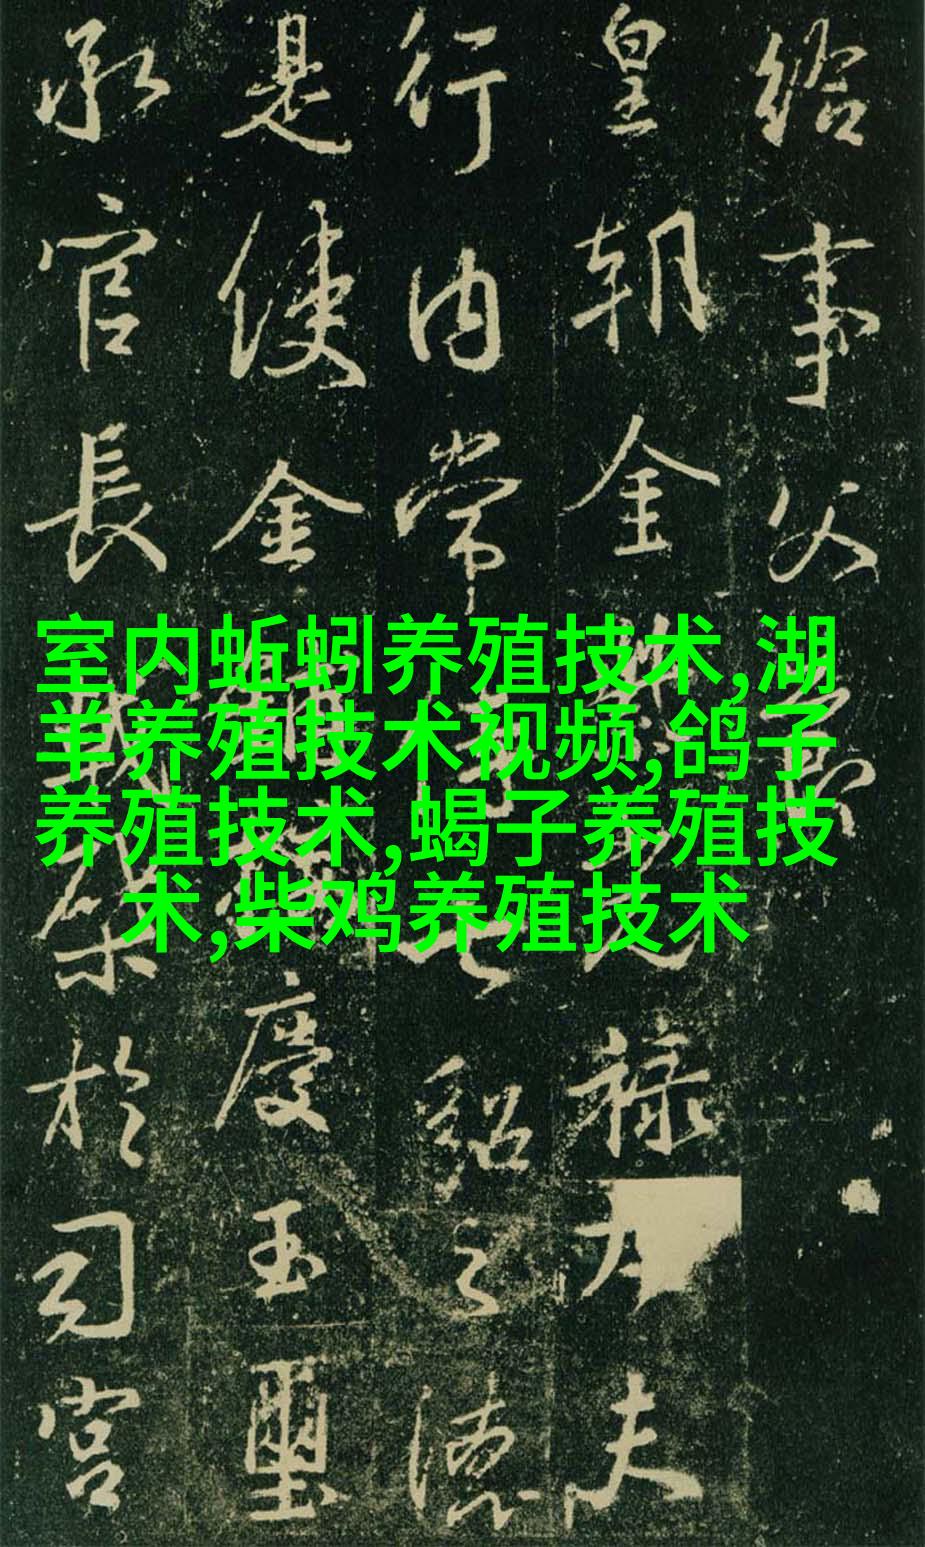 室内蚯蚓养殖技术,湖
羊养殖技术视频,鸽子
养殖技术,蝎子养殖技
术,柴鸡养殖技术
給事父
皇朝金祿大夫
行內常侍貂之德
是使金慶玉璽
承官長於司宮